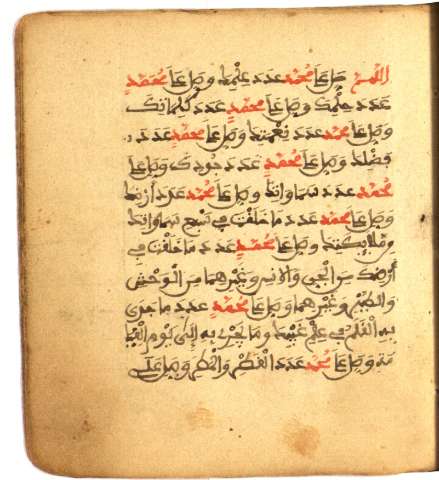 اللهم صل على محمد عدد علمك وصل على محمد
عدد حلمك وصل على محمد عدد كلماتك
وصل على محمد عدد نعمتك وصل على محمد عدد
فضلك وصل على محمد عدد جودك وصل على
محمد عدد سماواتك وصل على محمد عدد أرضك
وصل على محمد عدد ما خلقت في سبع سماواتك
وملائكتك وصل على محمد عدد ما خلقت في
أرضك من الجن والانس وغيرهما من الوحش
والطير وغيرهما وصل على محمد عدد ما جرى
به القلم في علم غيبك وما يجري به إلى يوم القيا
مة وصل على محمد عدد القطر والمطر وصل على